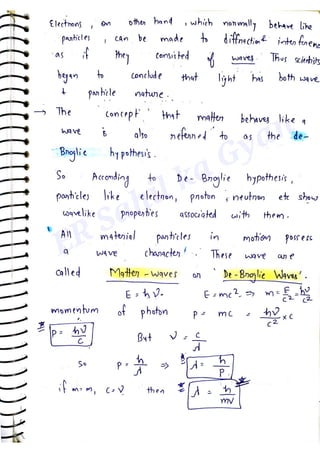 Electrons, on other hand, which normally behave like
particles, can be made to diffraction & interference
as if they consisted of waves. Thus scientists
began to conclude that light has both wave
& particle nature.
→ The concept that matter behaves like a
wave is also referred to as the de-
Broglie hypothesis.
So According to De-Broglie hypothesis,
particles like electron, proton, neutron etc show
wavelike properties associated with them.
All material particles in motion possess
a wave character. These wave are
called Matter-waves or 'De-Broglie Waves'.
E = hν. E = mc² ⇒ m = E/c² = hν/c²
momentum of photon p = mc = hν/c² × c
* p = hν/c But ν = c/λ
So p = h/λ ⇒ λ = h/p
if m = m, c = v then * λ = h/mv